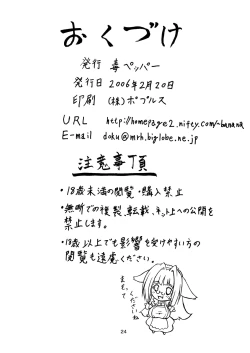 おくづけ
発行 毒ペッパー
発行日 2006年2月20日
印刷 (株)ポプルス
URL http://homepage2.nifty.com/-banana
E-mail doku@mrh.biglobe.ne.jp
注意事項
・18歳未満の閲覧・購入禁止
・無断での複製、転載、ネット上への公開を
禁止します。
・18歳以上でも影響を受けやすい方の
閲覧も遠慮ください。
まもって
くださいね
24